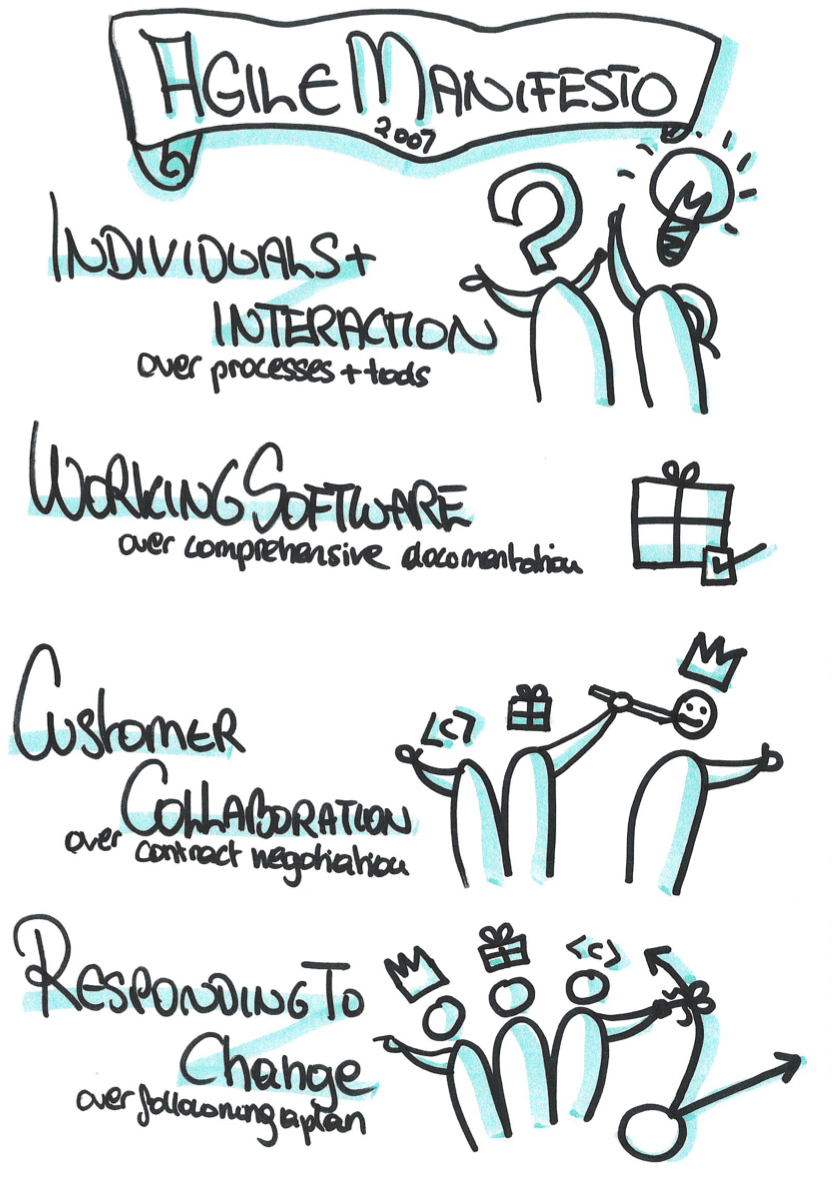 AGILE MANIFESTO
2007
INDIVIDUALS +
INTERACTION
over processes + tools
WORKING SOFTWARE
over comprehensive documentation
CUSTOMER
<c>
COLLABORATION
over contract negotiation
RESPONDING TO
<c>
Change
over following a plan